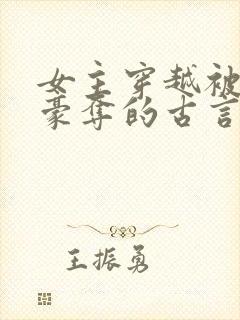 女主穿越被
豪夺的古言
王振勇